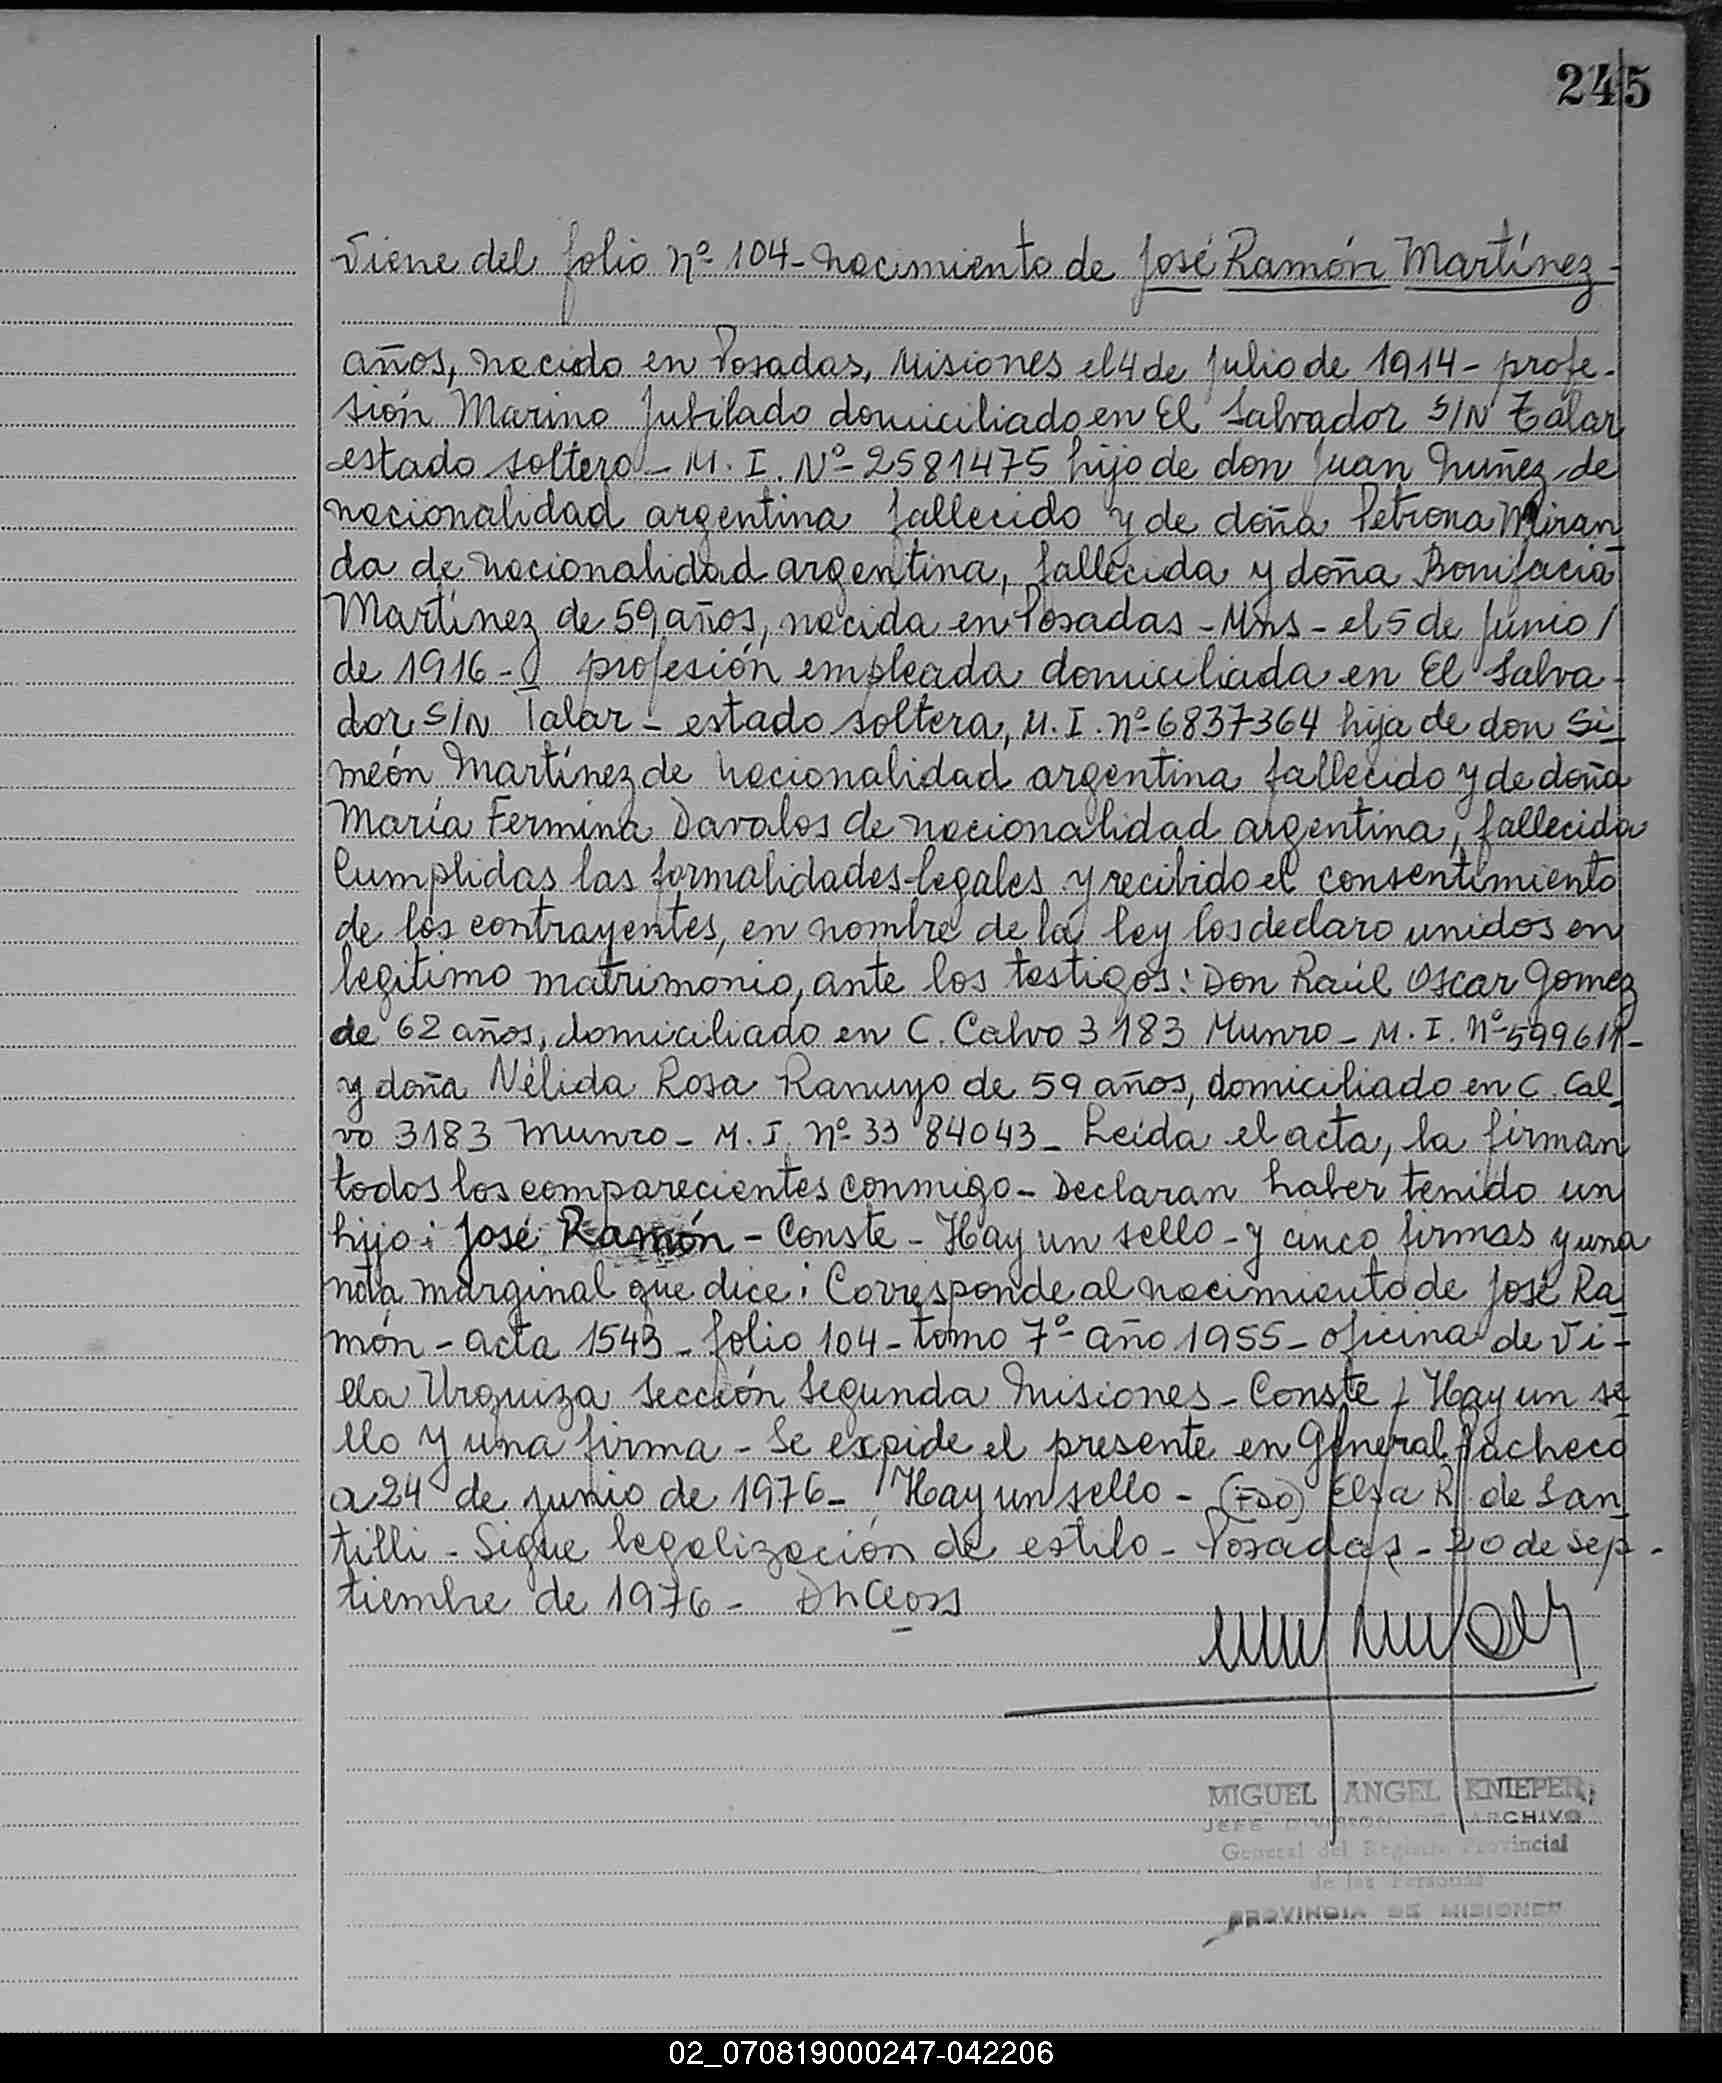 245
Viene del folio Nº 104 - Nacimiento de José Ramón Martínez -
años, nacido en Posadas, Misiones el 4 de Julio de 1914 - profe-
sión Marino Jubilado domiciliado en El Salvador S/N Talar
estado soltero - M. I. Nº 2581475 hijo de don Juan Nuñez de
nacionalidad argentina fallecido y de doña Petrona Miran
da de nacionalidad argentina, fallecida y doña Bonifacia
Martínez de 59 años, nacida en Posadas - Mns - el 5 de Junio /
de 1916 - profesión empleada domiciliada en El Salva-
dor S/N Talar - estado soltera, M. I. Nº 6837364 hija de don Si-
meón Martínez de nacionalidad argentina fallecido y de doña
María Fermina Davalos de nacionalidad argentina, fallecida
Cumplidas las formalidades legales y recibido el consentimiento
de los contrayentes, en nombre de la ley los declaro unidos en
legítimo matrimonio, ante los testigos: Don Raúl Oscar Gomez
de 62 años, domiciliado en C. Calvo 3183 Munro - M. I. Nº
y doña Nélida Rosa Ranuyo de 59 años, domiciliado en C. Cal-
vo 3183 Munro - M. I. Nº 3384043 - Leída el acta, la firman
todos los comparecientes conmigo - Declaran haber tenido un
hijo: José Ramón - Conste - Hay un sello - y cinco firmas y una
nota marginal que dice: Corresponde al nacimiento de José Ra-
món - acta 1543 - folio 104 - tomo 7º año 1955 - oficina de Vi-
lla Urquiza Sección Segunda Misiones - Conste / Hay un se-
llo y una firma - Se expide el presente en General Pacheco
a 24 de junio de 1976 - Hay un sello - (FDO) Elsa R. de San-
tilli - Sigue legalización de estilo - Posadas - 20 de sep-
tiembre de 1976 -
MIGUEL ANGEL KNIEPER
JEFE DIVISION DE ARCHIVO
General del Registro Provincial
de las Personas
PROVINCIA DE MISIONES
02_070819000247-042206